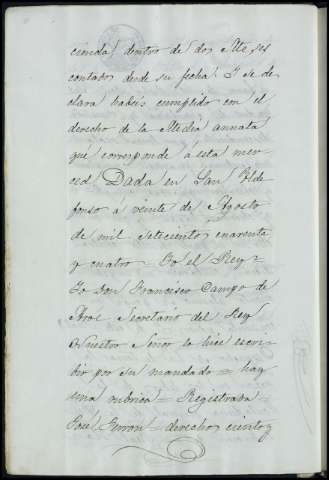 cienda dentro de dos Meses
contados desde su fecha: I se de
clara haber cumplido con el
derecho de la Media annata
que corresponde á esta mer
ced. Dada en San Ylde
fonso á veinte de Agosto
de mil setecientos cuarenta
y cuatro = Yo el Rey =
Yo Don Francisco Campo de
Arve Secretario del Rey
Nuestro Señor lo hice escri
bir por su mandado = hay
una rubrica = Registrada =
José Ferron = derechos ciento y